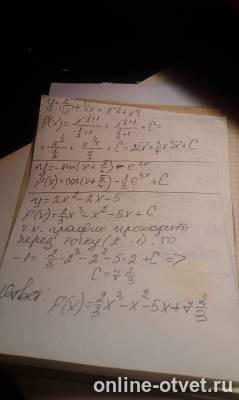 y = 1/√x + ³√x = x^(-1/2) + x^(1/3)
F(x) = x^(-1/2+1)/(-1/2+1) + x^(1/3+1)/(1/3+1) + C =
= x^(1/2)/(1/2) + x^(4/3)/(4/3) + C = 2√x + 3/4 x ³√x + C
y = -sin(x + π/4) - e^(3x)
F(x) = cos(x + π/4) - 1/3 e^(3x) + C
y = 2x² - 2x - 5
F(x) = 2/3 x³ - x² - 5x + C
т.к. график проходит
через точку (2; -1), то
-1 = 2/3 · 2³ - 2² - 5·2 + C =>
C = 7 2/3
Ответ:
F(x) = 2/3 x³ - x² - 5x + 7 2/3
online-otvet.ru